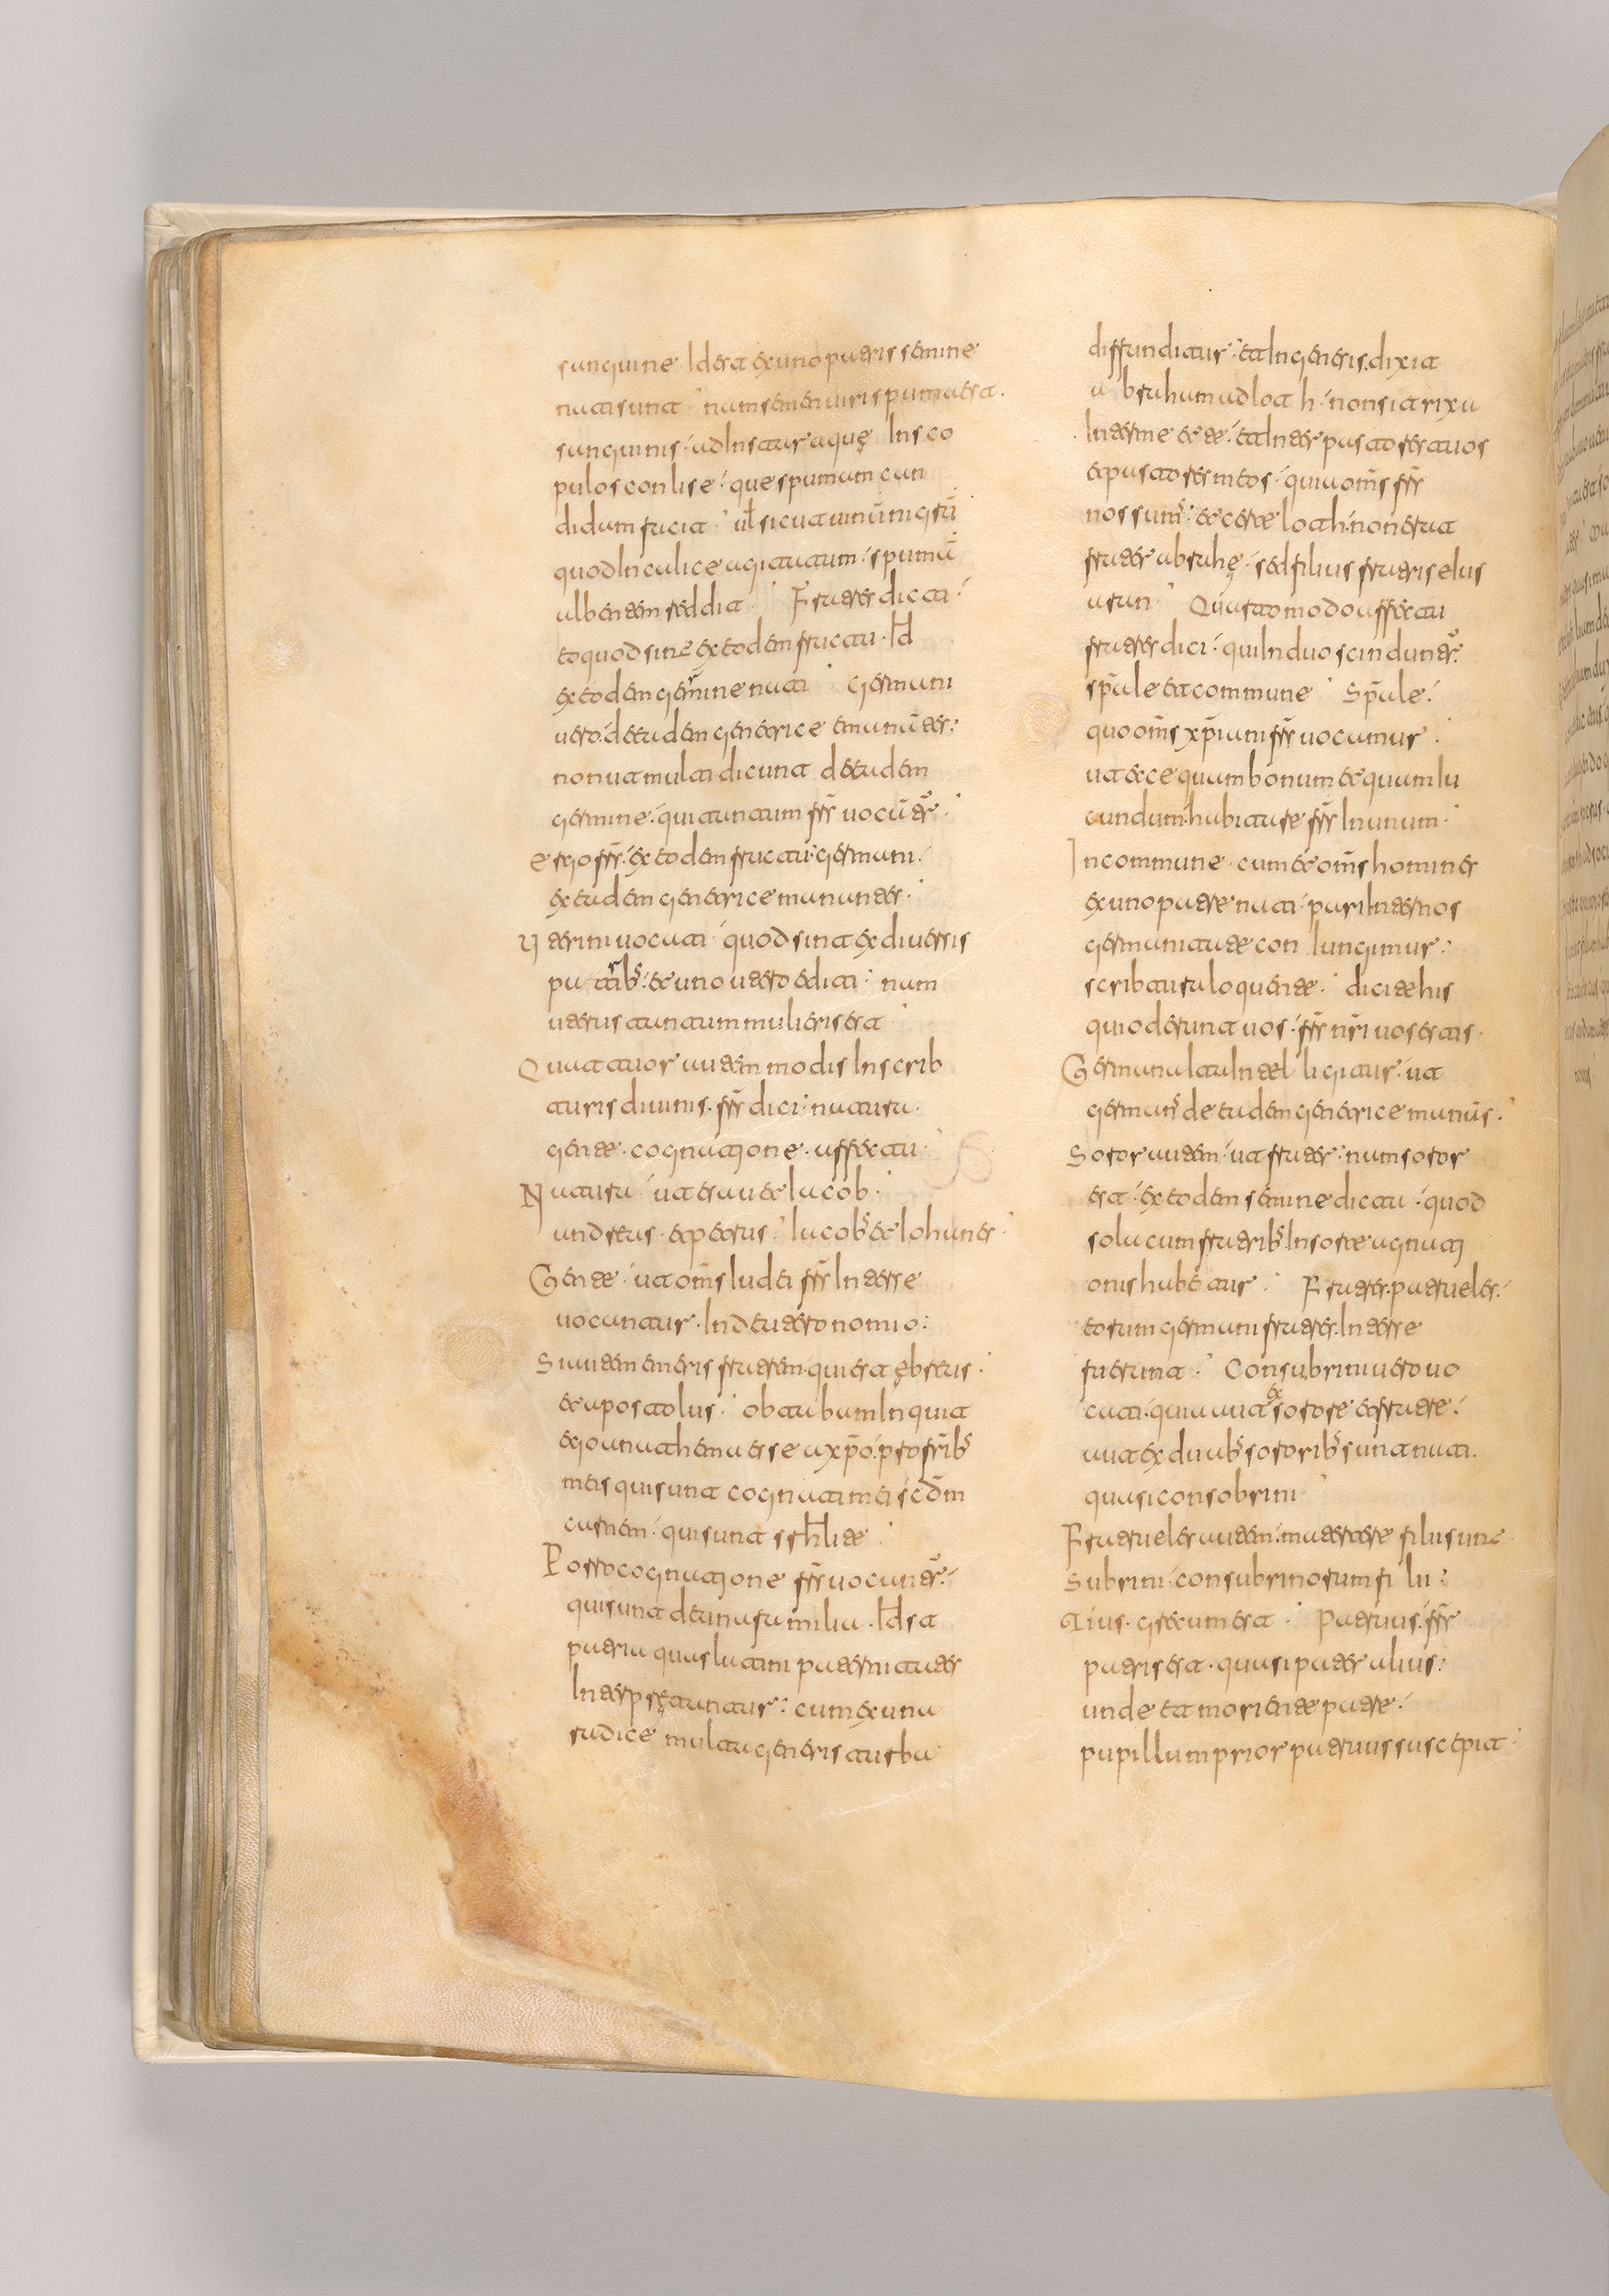 sanguine id est ex uno patris semine
nati sunt nam semen uiri spuma est.
sanguinis ad instar aquę in sco
pulos conlise que spumam can
didam facit ul̄ sicut uinū nigrū
quod in calice agitatum spumā
albentem reddit Fratres dicti
eo quod sint ex eodem fructu id
ex eodem germine nati Germani
uero de eadem genetrice emanātes
non ut multi dicunt de eadem
germine qui tantum frr̄ uocātr̄
ergo frr̄ ex eodem fructu germani
ex eadem genetrice manantes
Uterini uocati quod sint ex diuersis
patrib; et uno utero editi nam
uterus tantum mulieris est
Quattuor autem modis in scrib
turis diuinis frr̄ dici natura
gente cognatione affectu
Natura ut esau et iacob
andreas et petrus iacob; et iohannes
Gente ut oms̄ iudei frr̄ inter se
uocantur in deuteronomio
Si autem emeris fratrem qui est ębreus
et apostolus obtabam inquit
ego anathema esse a xp̄o pro frīb;
meis qui sunt cognati mei scdm̄
carnem qui sunt srhlite
Porro cognatione frr̄ uocantr̄
qui sunt de una familia id st
patria quas latini paternitates
interprętantur cum ex una
radice multa generis turba
diffunditur et in generis dixit
abraham ad loth non sit rixa
inter me et te et inter pastores tuos
et pastores meos quia oms̄ frr̄
nos sum; et certe loth non erat
frater abrahę sed filius fratris eius
aran Quarto modo affectu
fratres dici qui in duo scindunt̄r
sp̄ale et commune Sp̄ale
quo oms̄ xp̄iani frr̄ uocamur
ut ecce quam bonum et quam iu
cundum habitare frr̄ in unum
In commune cum et oms̄ homines
ex uno patre nati pari inter nos
germanitate con iungimur
scribtura loquente dicite his
qui oderunt uos frr̄ nr̄i uos estis
Germana ita intelligitur ut
german; de eadem genetrice manās
Soror autem ut frater nam soror
est ex eodem semine dicta quod
sola cum fratrib; in sorte agnati
onis habetur Fratres patrueles
eorum germani fratres inter se
fuerunt Consabrini uero uo
cati quia aut ex sorore et fratre
aut ex duab; sororib; sunt nati
quasi consobrini
Fratrueles autem materterę filii sunt
Sabrini consabrinorum filii
Tius grecum est Patruus frr̄
patris est quasi pater alius
unde et moriente patre
pupillum prior patruus suscepit